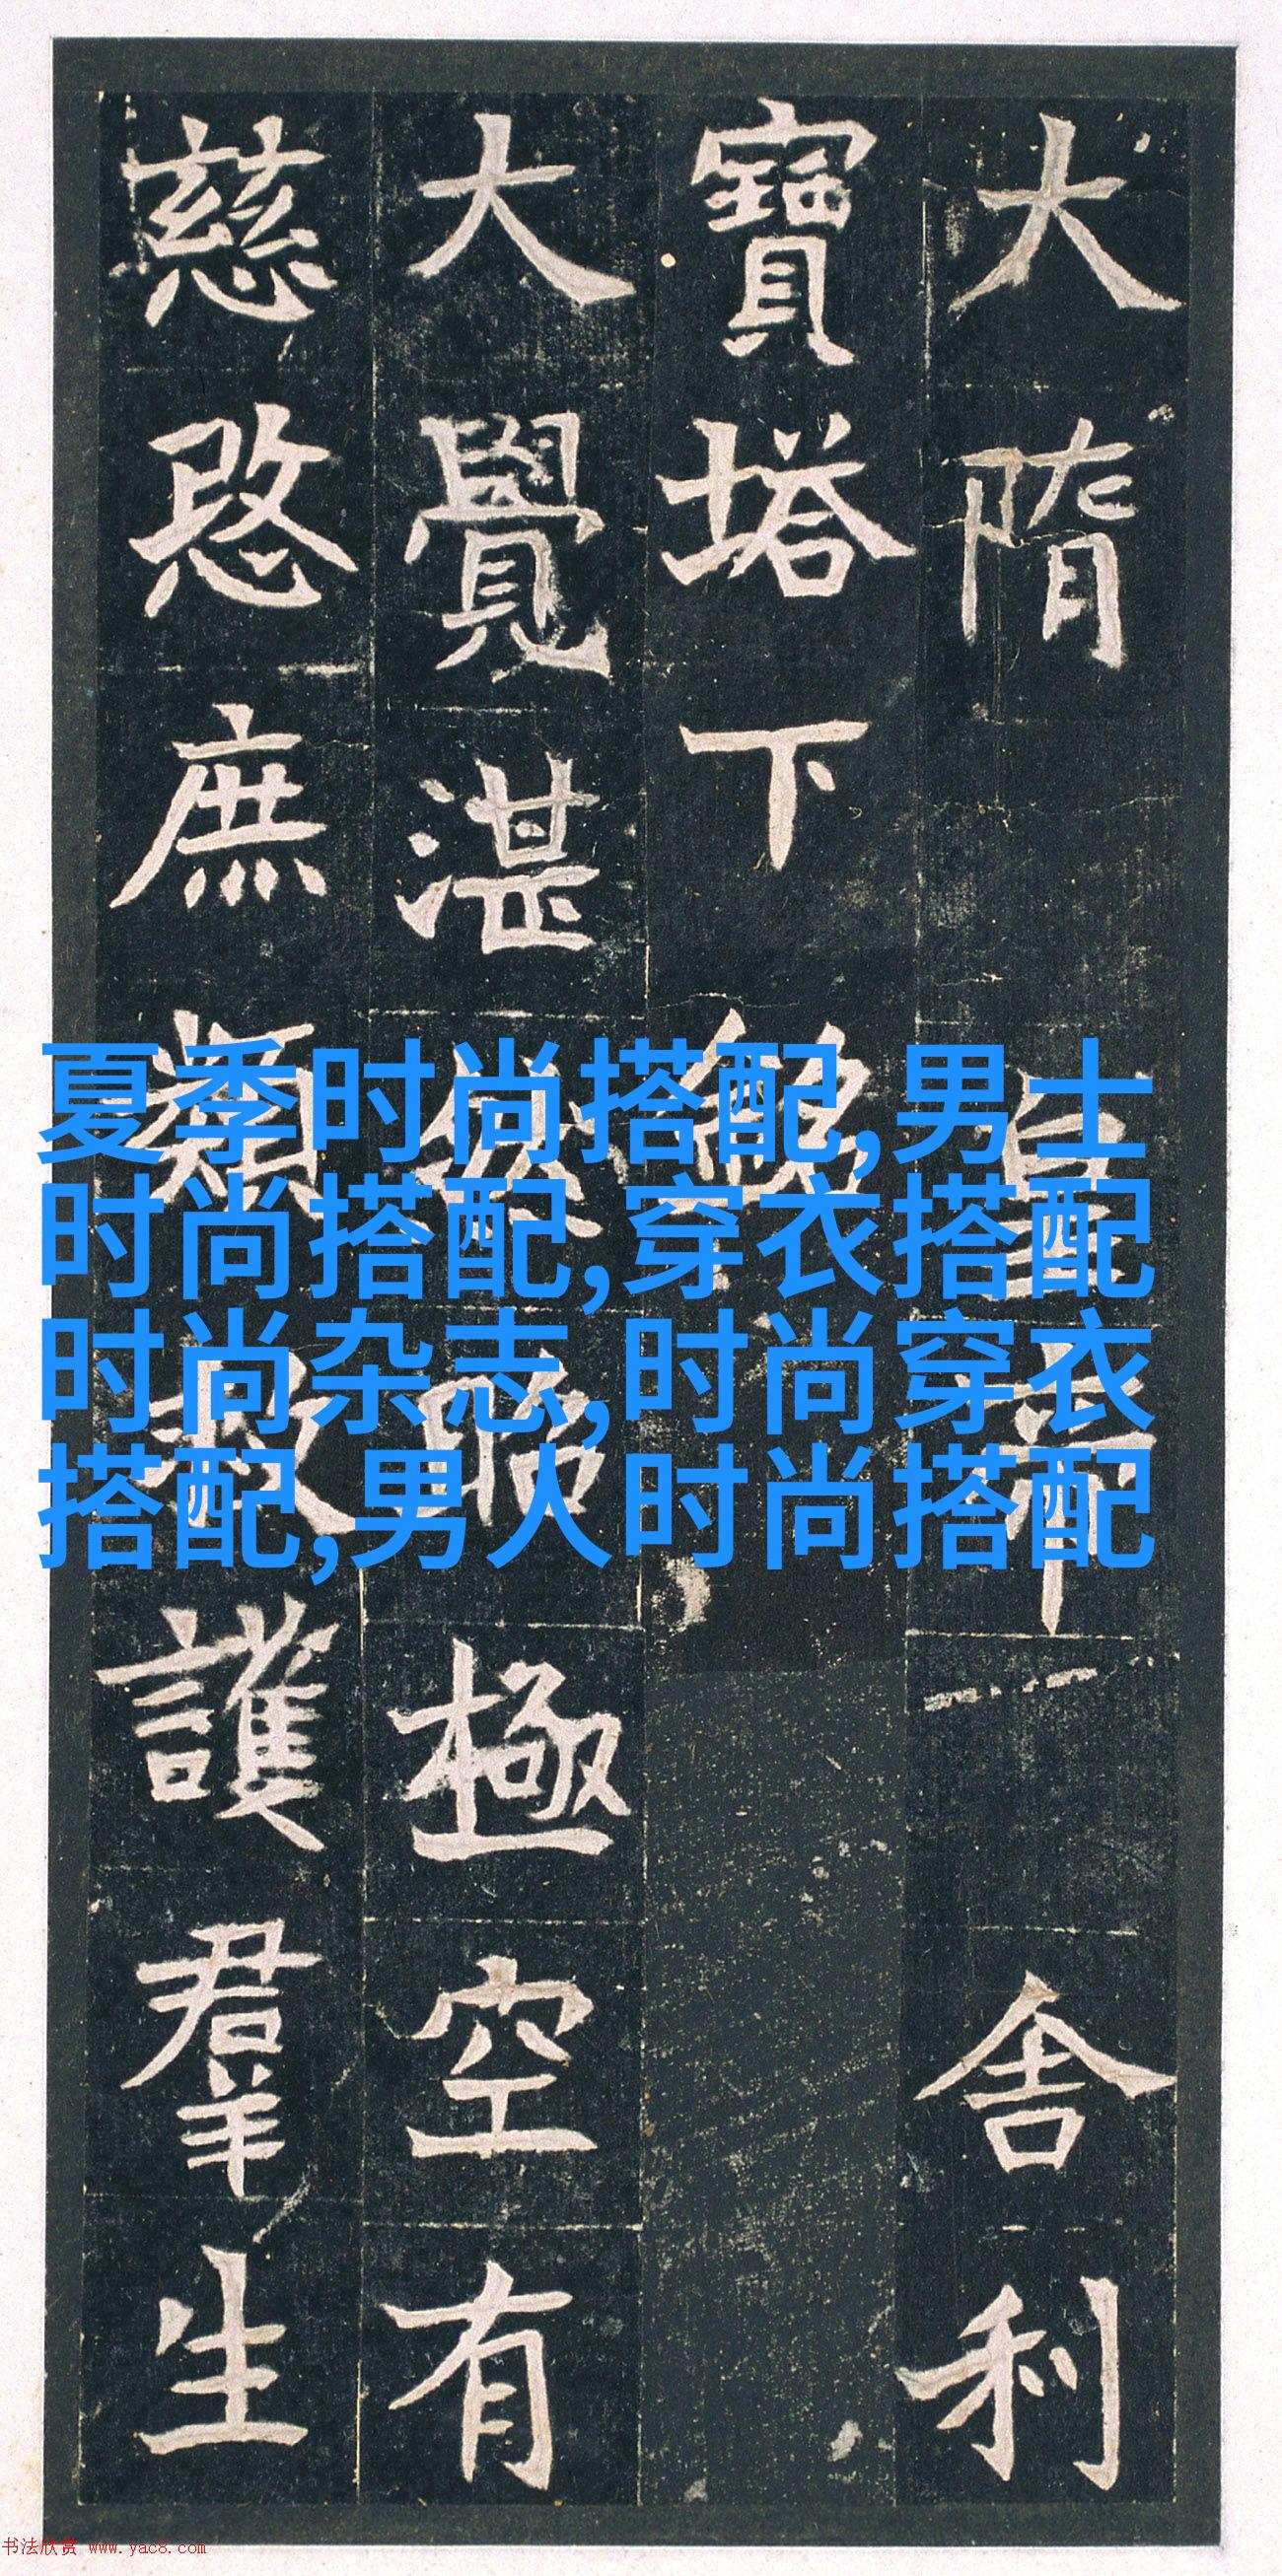 大隋皇帝舍利
寶塔下銘
大覺湛然昭極空有
慈愍庶類救護羣生
夏季时尚搭配,男士
时尚搭配,穿衣搭配
时尚杂志,时尚穿衣
搭配,男人时尚搭配
书法欣赏 www.yac8.com